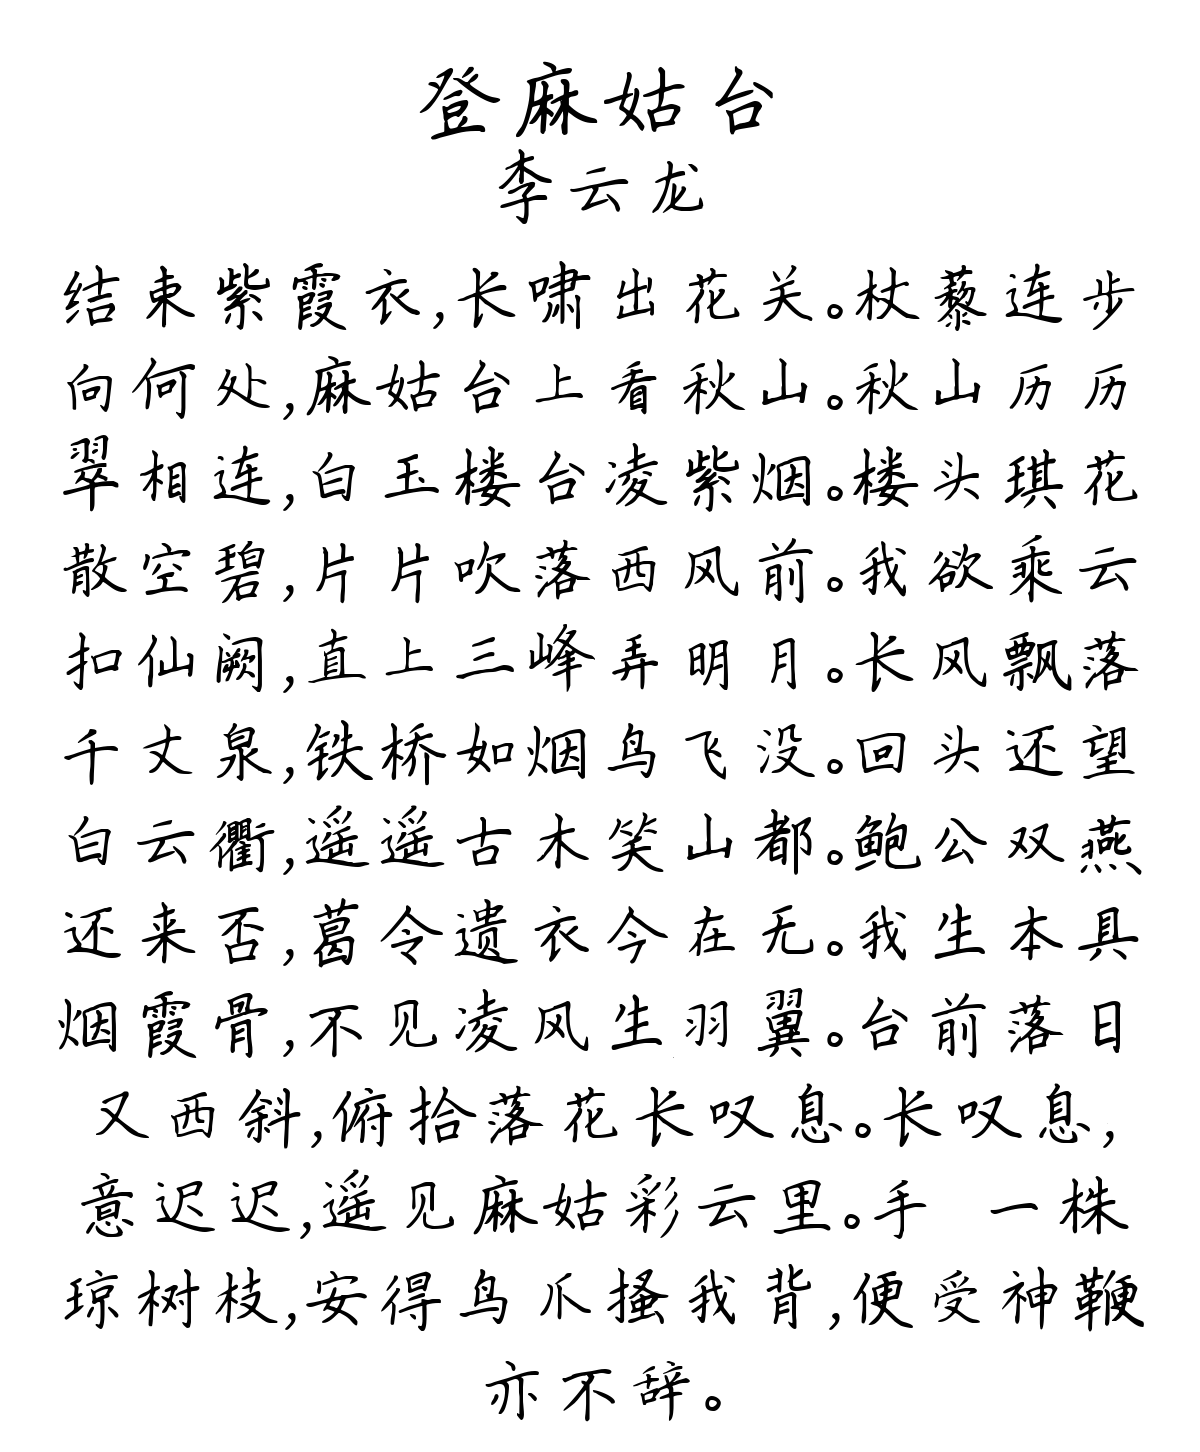 登麻姑台
李云龙
结束紫霞衣,长啸出花关。杖藜连步
向何处,麻姑台上看秋山。秋山历历
翠相连,白玉楼台凌紫烟。楼头琪花
散空碧,片片吹落西风前。我欲乘云
扣仙阙,直上三峰弄明月。长风飘落
千丈泉,铁桥如烟鸟飞没。回头还望
白云衢,遥遥古木笑山都。鲍公双燕
还来否,葛令遗衣今在无。我生本具
烟霞骨,不见凌风生羽翼。台前落日
又西斜,俯拾落花长叹息。长叹息,
意迟迟,遥见麻姑彩云里。手 一株
琼树枝,安得鸟爪搔我背,便受神鞭
亦不辞。